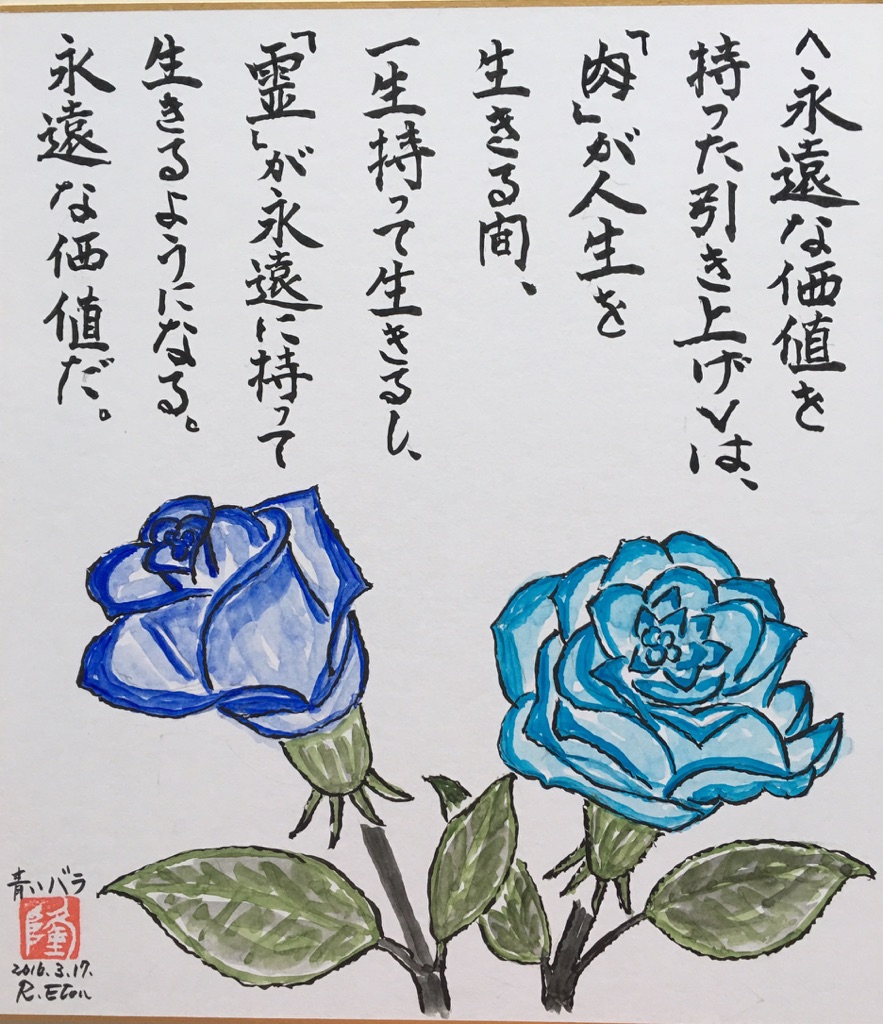 〈永遠な価値を
持った引き上げ〉は、
「肉」が人生を
生きる間、
一生持って生きるし、
「霊」が永遠に持って
生きるようになる。
永遠な価値だ。
青いバラ
隆
2016.3.17.